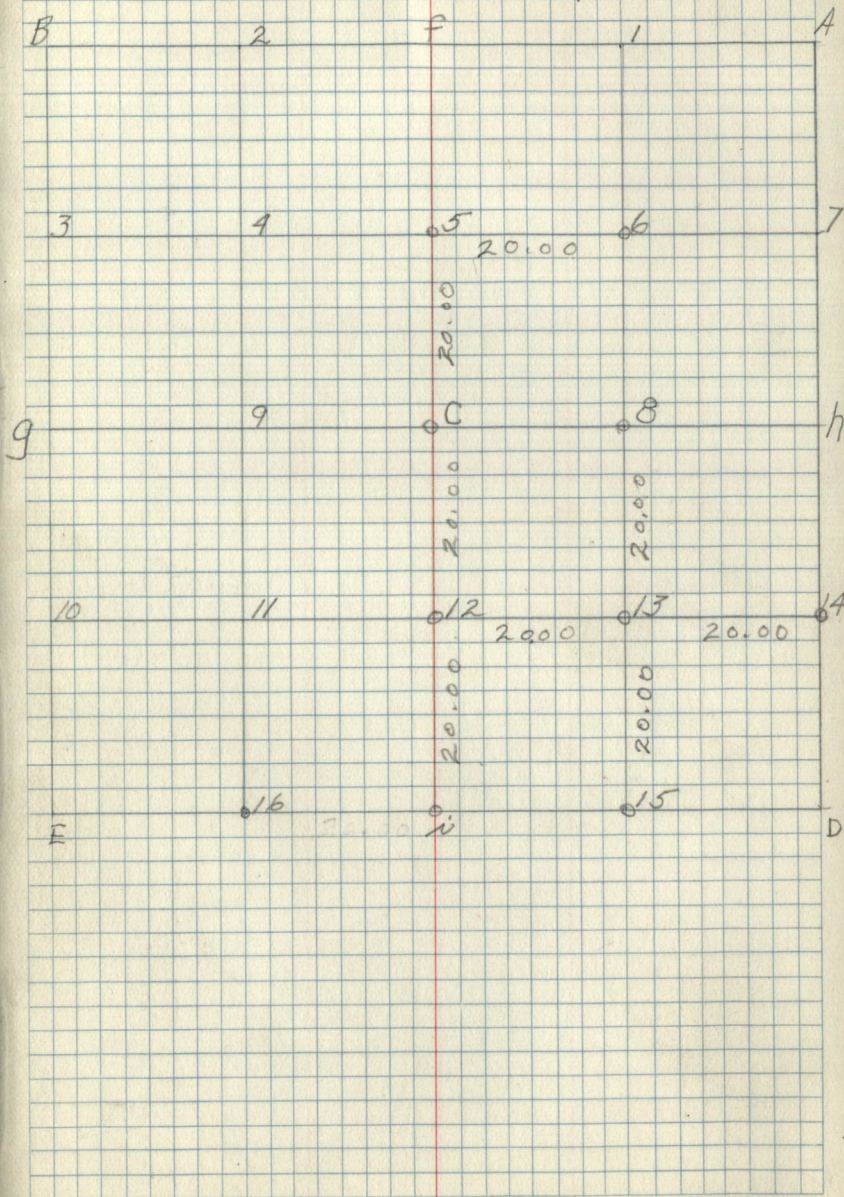 B 2 f 1 A
3 4 5 6 7
20.00
20.00
g 9 C 8 h
20.00 20.00
10 11 12 13 14
20.00 20.00
20.00 20.00
E 16 i 15 D